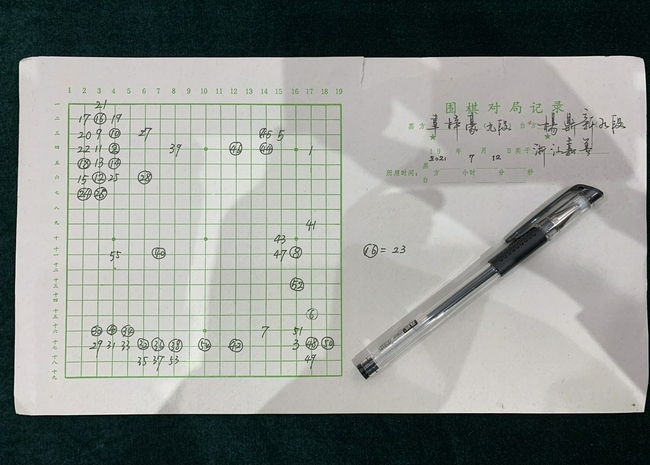 1 2 3 4 5 6 7 8 9 10 11 12 13 14 15 16 17 18 19
围棋对局记录
黑方 辜梓豪九段 白方 杨鼎新九段
19 年 月 日弈于 浙江嘉善
2021 7 12
所用时间: 黑方 小时 分 秒
白
一 21
二 17 16 19
三 20 9 10 27 45 5
四 22 11 2 39 46 44 1
五 18 13 14
六 15 12 25 28
七 24 26
八
九 41
十 43
十一 55 40 47 8 16 = 23
十二
十三 52
十四
十五 6
十六 30 34 7 51
十七 29 31 33 32 36 38 54 42 3 48 50
十八 35 37 53 49
十九